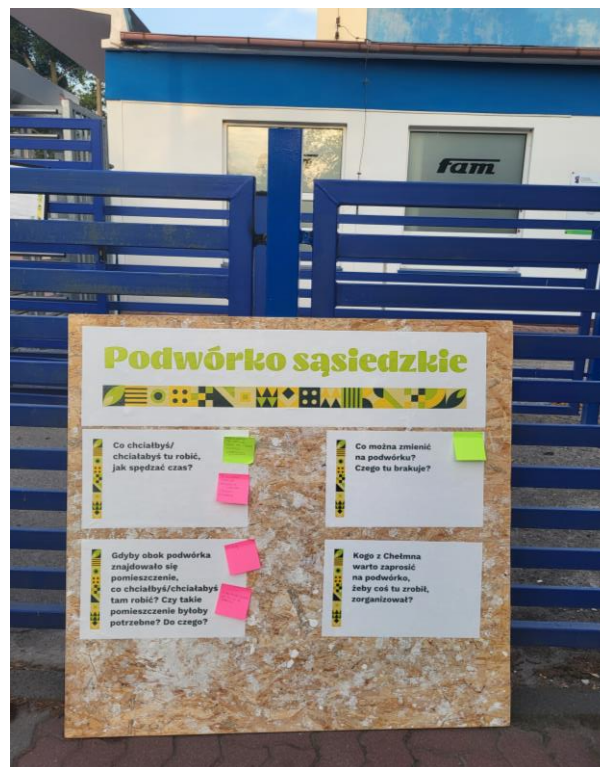 fam
Podwórko sąsiedzkie
Co chciałbyś/
chciałabyś tu robić,
jak spędzać czas?
Co można zmienić
na podwórku?
Czego tu brakuje?
Gdyby obok podwórka
znajdowało się
pomieszczenie,
co chciałbyś/chciałabyś
tam robić? Czy takie
pomieszczenie byłoby
potrzebne? Do czego?
Kogo z Chełmna
warto zaprosić
na podwórko,
żeby coś tu zrobił,
zorganizował?